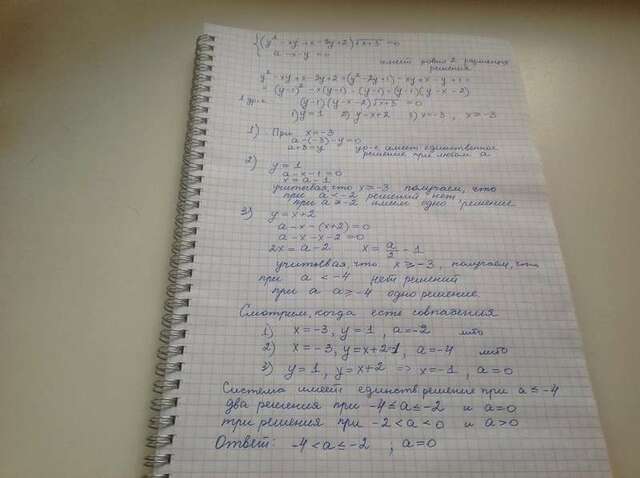 {(y² - xy + x - 3y + 2)√x+3 = 0
a - x - y = 0
имеет ровно 2 различных решения
y² - xy + x - 3y + 2 = (y² - 2y + 1) - xy + x - y + 1 =
= (y-1)² - x(y-1) - (y-1) = (y-1)(y-x-2)
1 ур-е (y-1)(y-x-2)√x+3 = 0
1) y=1 2) y=x+2 3) x=-3, x≥-3
1) При x=-3
a-(-3)-y=0
a+3=y ур-е имеет единственное решение при любом a
2) y=1
a-x-1=0
x=a-1
учитывая, что x≥-3 получаем, что
при a<-2 решений нет,
при a≥-2 имеем одно решение
3) y=x+2
a-x-(x+2)=0
a-x-x-2=0
2x=a-2 x=a/2-1
учитывая, что x≥-3, получаем, что
при a<-4 нет решений
при a a≥-4 одно решение.
Смотрим, когда есть совпадения
1) x=-3, y=1, a=-2
2) x=-3, y=x+2=-1, a=-4
3) y=1, y=x+2 ⇒ x=-1, a=0
Система имеет единств решение при a≤-4
два решения при -4≤a≤-2 и a=0
три решения при -2<a<0 и a>0
Ответ: -4<a≤-2, a=0